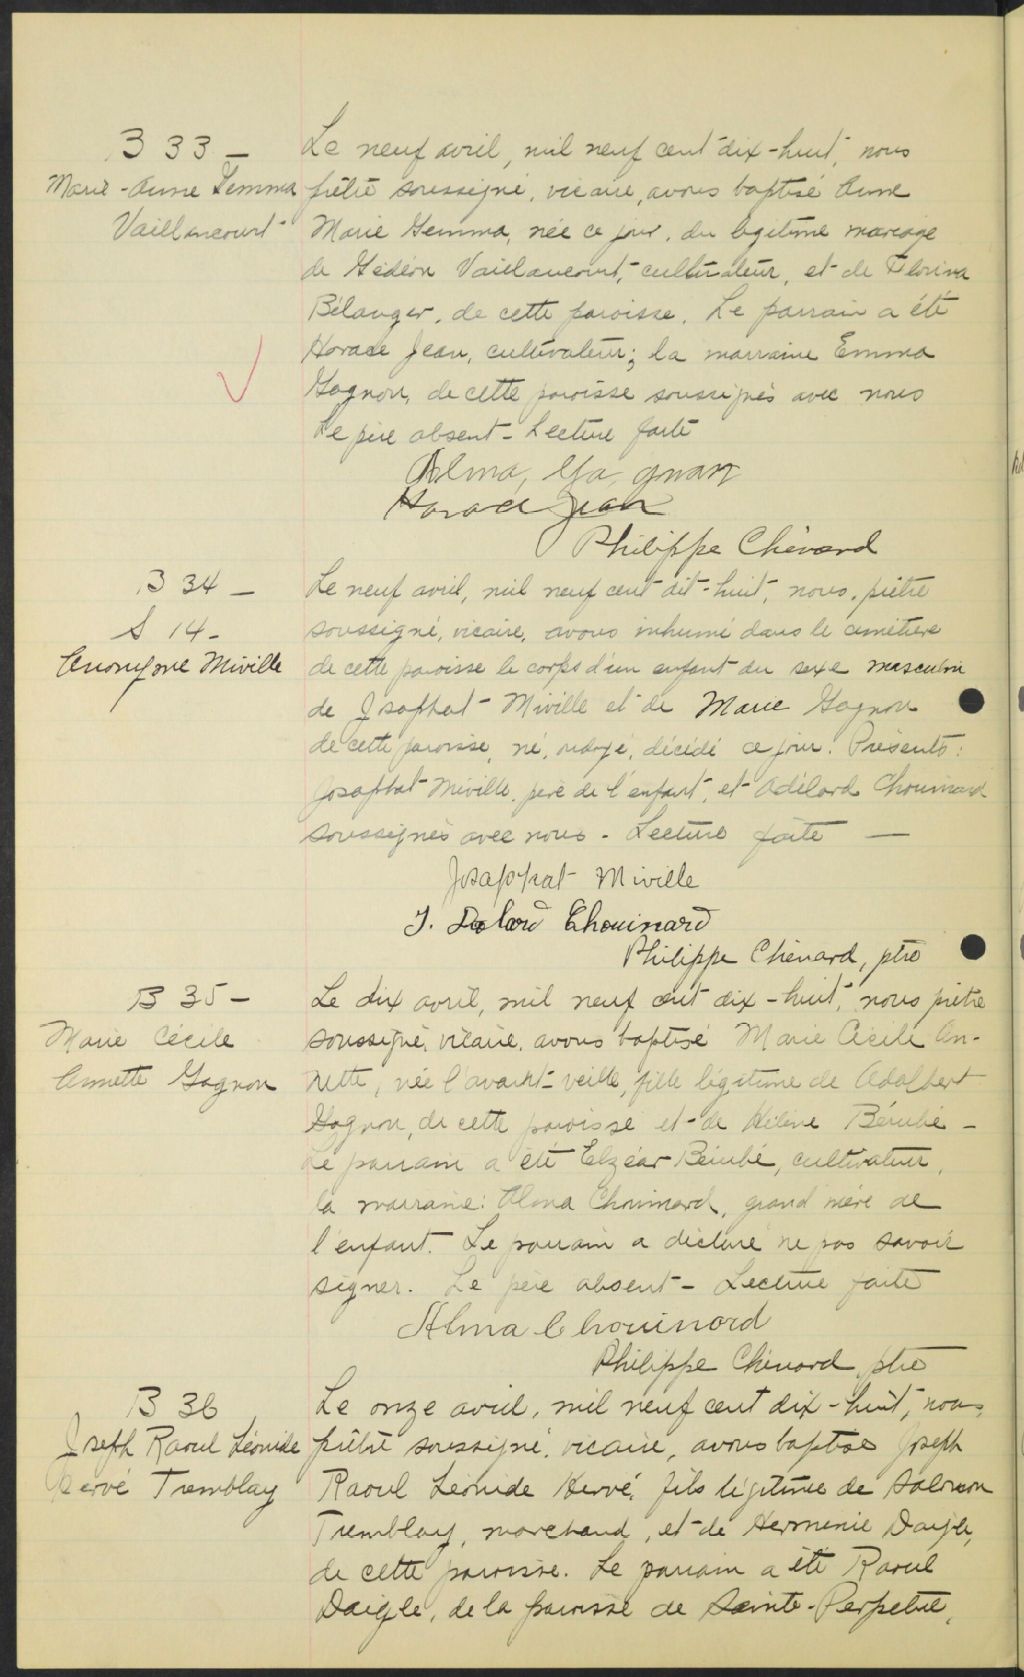 B 33 –
Marie-Anne Gemma
Vaillancourt
Le neuf avril, mil neuf cent dix-huit, nous
prêtre soussigné, vicaire, avons baptisé Anne
Marie Gemma, née ce jour, du légitime mariage
de Gédéon Vaillancourt, cultivateur, et de Florina
Bélanger, de cette paroisse. Le parrain a été
Horace Jean, cultivateur; la marraine Emma
Gagnon, de cette paroisse soussignés avec nous
Le père absent – Lecture faite
Alma, Ga, gnon
Horace Jean
Philippe Chénard
B 34 –
S 14 –
Anonyme Miville
Le neuf avril, mil neuf cent dit-huit, nous, prêtre
soussigné, vicaire, avons inhumé dans le cimetière
de cette paroisse le corps d'un enfant du sexe masculin
de Josaphat Miville et de Marie Gagnon
de cette paroisse, né, ondoyé, décédé ce jour. Présents:
Josaphat Miville, père de l'enfant, et Adélard Chouinard
soussignés avec nous – Lecture faite —
Josaphat Miville
J. Delard Chouinard
Philippe Chénard, ptre
B 35 –
Marie Cécile
Annette Gagnon
Le dix avril, mil neuf cent dix-huit, nous prêtre
soussigné, vicaire, avons baptisé Marie Cécile An-
nette, née l'avant-veille, fille légitime de Adalbert
Gagnon, de cette paroisse et de Hélène Bérubé –
Le parrain a été Elzéar Bérubé, cultivateur,
la marraine: Alma Chouinard, grand'mère de
l'enfant. Le parrain a déclaré ne pas savoir
signer. Le père absent – Lecture faite
Alma Chouinard
Philippe Chénard ptre
B 36
Joseph Raoul Léonide
Hervé Tremblay
Le onze avril, mil neuf cent dix-huit, nous,
prêtre soussigné, vicaire, avons baptisé Joseph
Raoul Léonide Hervé, fils légitime de Salomon
Tremblay, marchand, et de Hermenie Daigle,
de cette paroisse. Le parrain a été Raoul
Daigle, de la paroisse de Sainte-Perpétue,